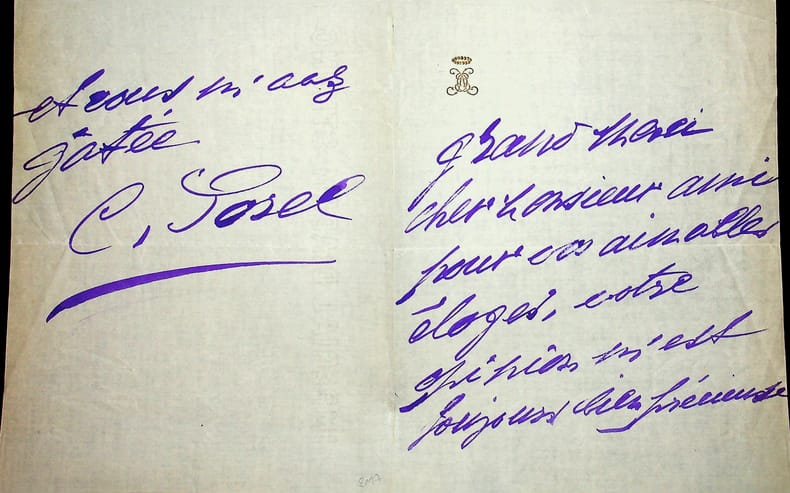 grand merci
cher Monsieur ami
pour vos aimables
éloges, votre
opinion m'est
toujours bien précieuse
et vous m'avez
gâtée
C. Sorel